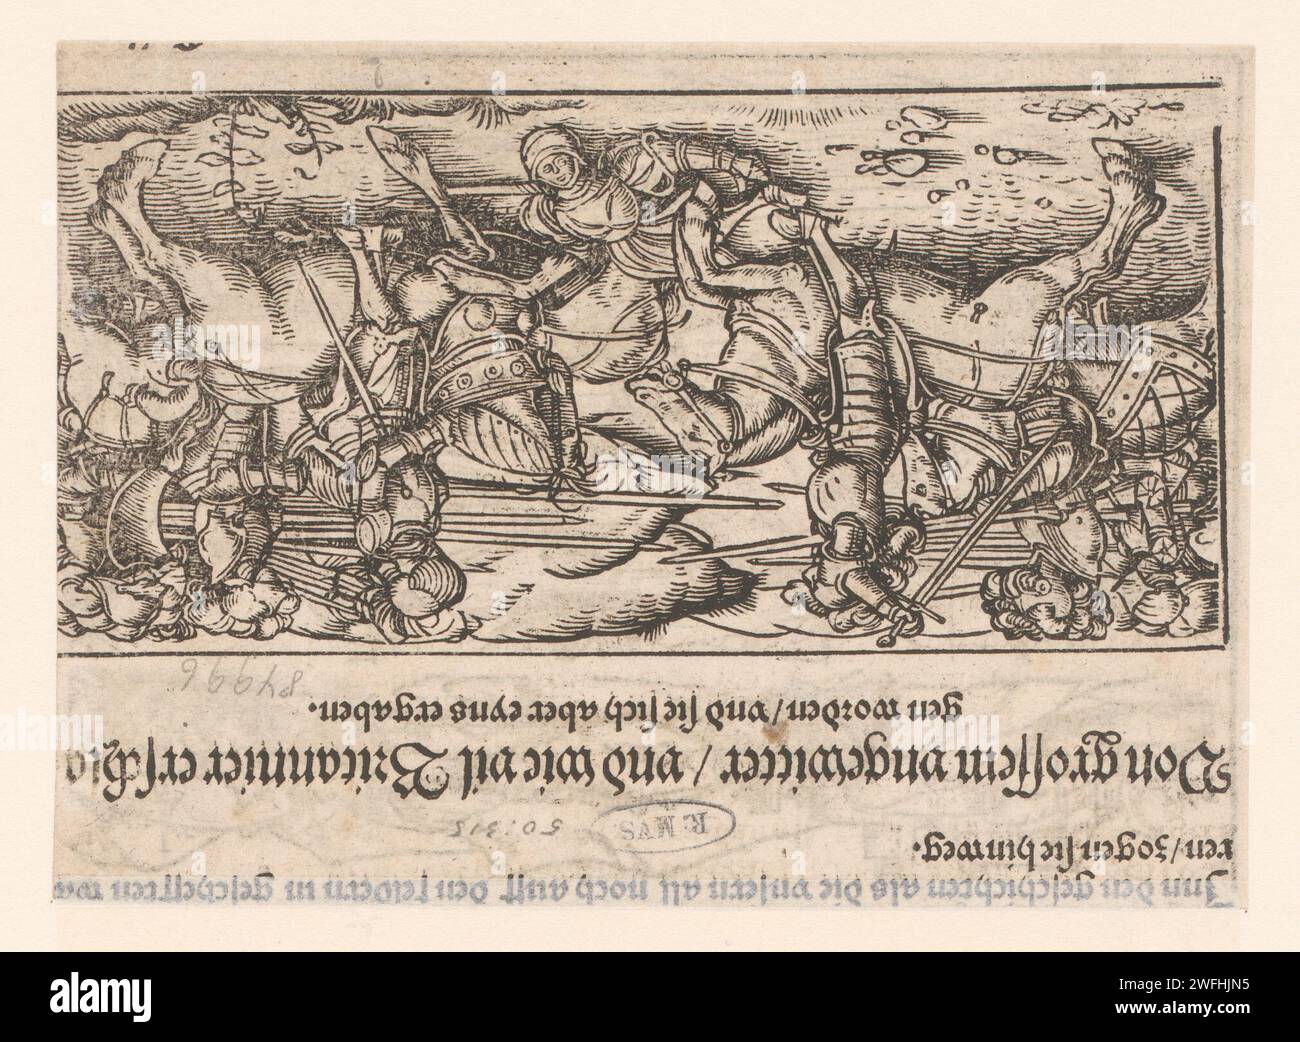 Inn den geſchichten als die vnſern all noch auff den feldern in geſchefften wa
ren/zogen ſie hinweg.
R. MVS
Von groſſem vngewitter/ vnd wie vil Britannier erſchla
gen worden/vnd ſie ſich aber eyns ergaben.
alamy
Image ID: 2WFHJN5
www.alamy.com